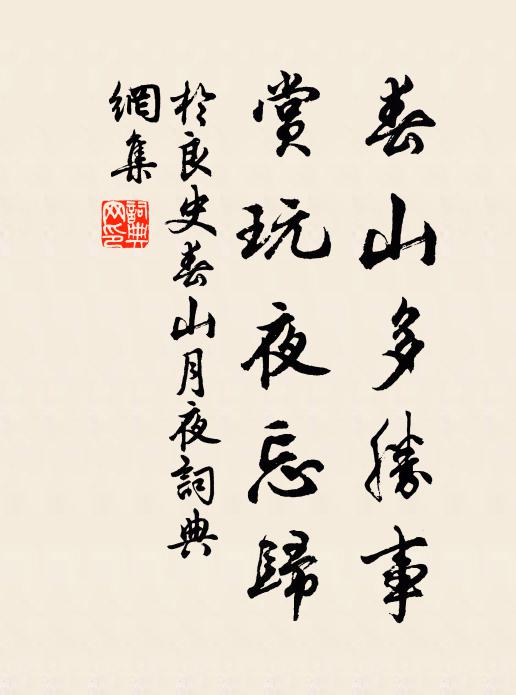 春山多勝事
賞玩夜忘歸
於良史春山月夜詞典
網集
詞典
网印